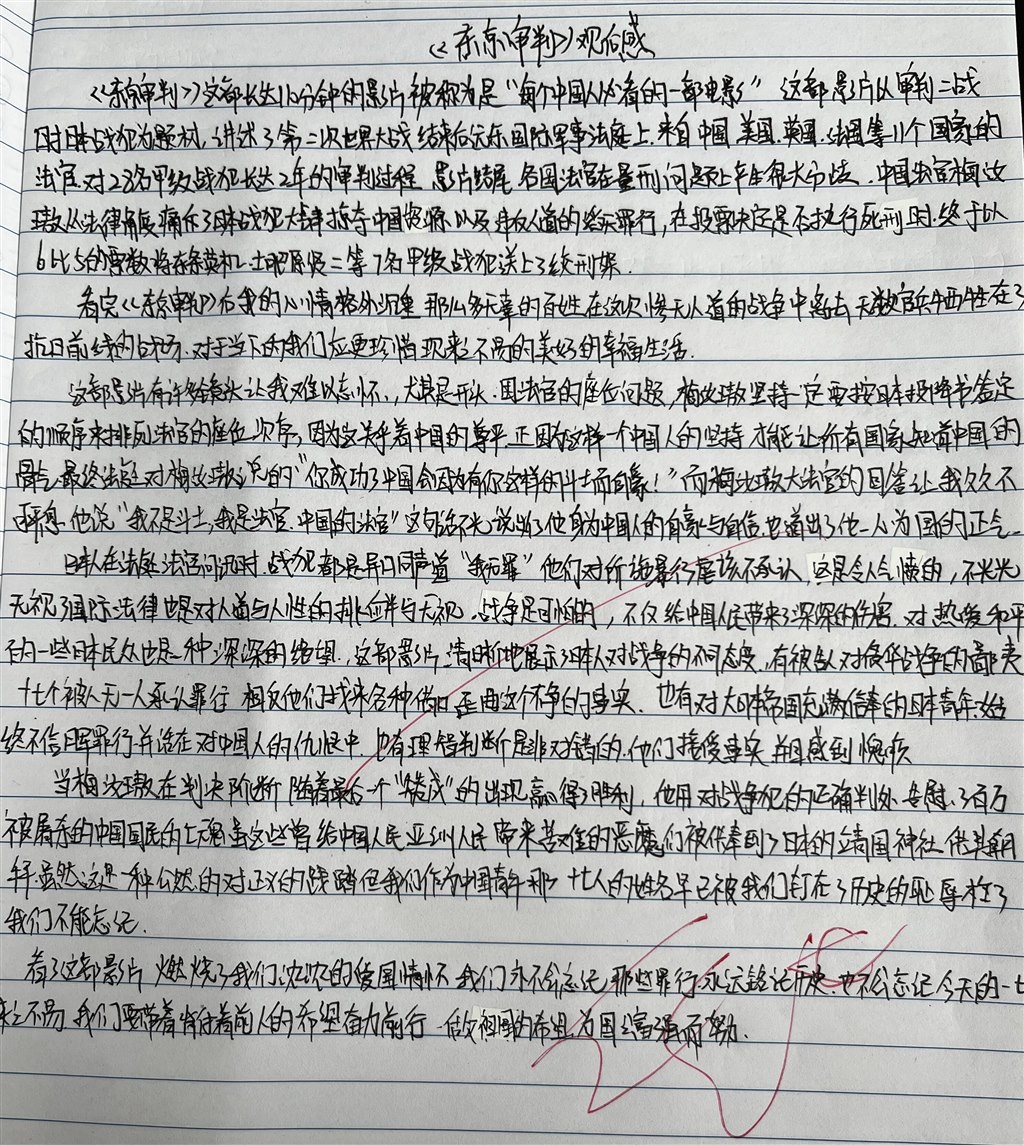 《东京审判》观后感
《东京审判》这部长达110分钟的影片被称为是“每个中国人必看的一部电影” 这部影片以审判二战
时日本战犯为题材,讲述了第二次世界大战结束后远东国际军事法庭上.来自中国.美国.英国.法国等11个国家的
法官.对28名甲级战犯长达2年的审判过程 影片结尾 各国法官在量刑问题上产生很大分歧.中国法官梅汝
璈从法律角度痛斥了日本战犯大肆掠夺中国资源以及违反人道的滔天罪行,在投票决定是否执行死刑时.终于以
6比5的票数将东条英机.土肥原贤二等7名甲级战犯送上了绞刑架.
看完《东京审判》后我的心情格外沉重 那么多无辜的百姓在这次惨无人道的战争中离去 无数官兵牺牲在了
抗日前线的战场.对于当下的我们应更珍惜现来之不易的美好的幸福生活.
这部影片有许多镜头让我难以忘怀,尤其是开头.因法官的座位问题,梅汝璈坚持一定要按日本投降书签定
的顺序来排列法官的座位次序,因为这关乎着中国的尊严.正因为这样一个中国人的坚持 才能让所有国家知道中国的
骨气.最终法庭对梅汝璈说的“你成功了中国会因为有你这样的斗士而自豪!”而梅汝璈大法官的回答让我久久不
平息 他说“我不是斗士,我是法官.中国的法官”这句话不光说出了他身为中国人的自豪与自信.也道出了他一人为国的正气.
日本人在法庭法官问讯时.战犯都是异口同声道“我无罪”他们对所施暴行屡该不承认.这是令人气愤的,不光光
无视了国际法律也是对人道与人性的排斥与无视.战争是可怕的,不仅给中国人民带来了深深的伤害.对热爱和平
的一些日本民众也是一种深深的绝望.这部影片清晰地展示了日本人对战争的不同态度,有被告人对侵华战争的鄙夷
十七个被人无一人承认罪行 相反他们找来各种借口歪曲这个不争的事实.也有对大日本帝国充满信奉的日本青年.始
终不信日军罪行并活在对中国人的仇恨中 也有理智判断是非对错的.他们接受事实并且感到愧疚
当梅汝璈在判决阶断 随着最后一个“赞成”的出现赢得了胜利,他用对战争犯的正确判处.告慰了百万
被屠杀的中国国民的亡魂虽这些曾给中国人民亚洲人民带来苦难的恶魔们被供奉到了日本的靖国神社.供其朝
拜.虽然这是一种公然的对正义的践踏但我们作为中国青年 那十七人的姓名早已被我们钉在了历史的耻辱柱了
我们不能忘记.
看了这部影片 燃烧了我们浓浓的爱国情怀 我们永不会忘记那些罪行.永远铭记历史.也不会忘记今天的一切
来之不易.我们要带着背付着前人的希望奋力前行 做好祖国的希望.为国之富强而努力.